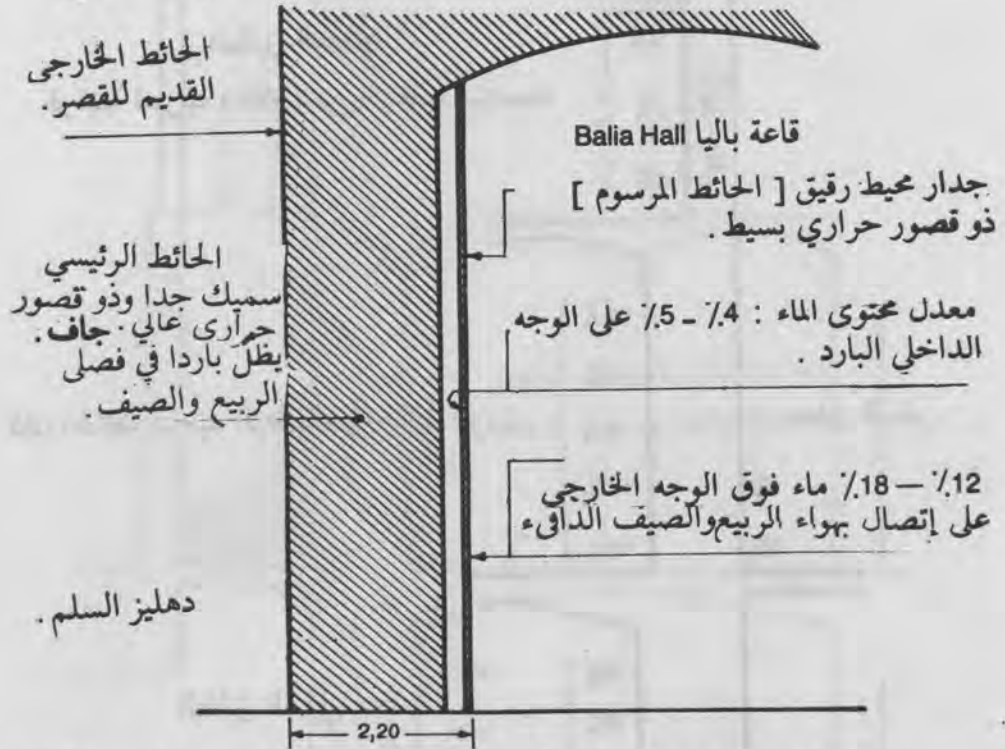 الحائط الخارجى
القديم للقصر .
قاعة باليا Balia Hall
جدار محيط رقيق [ الحائط المرسوم ]
ذو قصور حراري بسيط .
الحائط الرئيسي
سميك جدا وذو قصور
حرارى عالي . جاف .
يظلّ باردا في فصلى
الربيع والصيف .
معدل محتوى الماء : 4٪ ـ 5٪ على الوجه
الداخلي البارد .
12٪ — 18٪ ماء فوق الوجه الخارجي
على إتصال بهواء الربيع والصيف الدافىء
دهليز السلم .
2,20